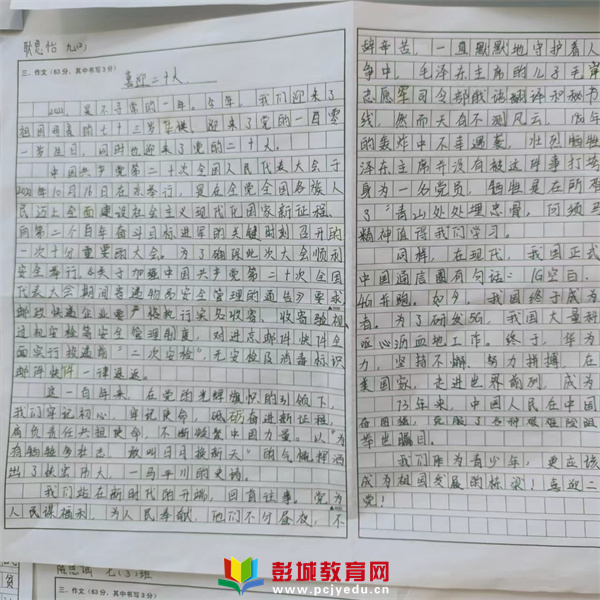 耿思怡 九(2)
三、作文(63分，其中书写3分)
喜迎二十大
2022，是不寻常的一年。今年，我们迎来了
祖国母亲的七十三岁华诞，迎来了党的一百零
一岁生日，同时也迎来了党的二十大。
中国共产党第二十次全国人民代表大会于
2022年10月16日在京举行，是在全党全国各族人
民迈上全面建设社会主义现代化国家新征程、
向第二个百年奋斗目标进军的关键时刻召开的
一次十分重要的大会。为了确保此次大会顺利
安全举行，《关于加强中国共产党第二十次全国
代表大会期间寄递物品安全管理的通告》要求
邮政快递企业要严格执行实名收寄、收寄验视
过机安检等安全管理制度，对进京邮件快件全
面实行投递前"二次安检"，无安检及消毒标识
邮件快件一律退运。
这一百年来，在党的光辉旗帜的引领下，
我们牢记初心，牢记使命，砥砺奋进新征程，
肩负责任共担使命，不断凝聚中国力量。以"为
有牺牲多壮志，敢叫日月换新天"的气概挥洒
出了恢宏伟大、一马平川的史诗。
我们站在新时代的开端，回首往事。党为
人民谋福利，为人民奉献，他们不分昼夜，不
辞辛苦，一直默默地守护着人
争中，毛泽东主席的儿子毛岸
志愿军司令部俄语翻译和秘书
线，然而天有不测风云，1950年
的轰炸中不幸遇袭，壮烈牺牲
泽东主席并没有被这件事打垮
身为一名党员，牺牲是在所有
了"青山处处埋忠骨，何须马
精神值得我们学习。
同样，在现代，我国正式
中国通信圈有句话：1G空白，
4G并跑。如今，我国终于成为
者。为了研发5G，我国大量科
呕心沥血地工作。终于，华为
力，坚持不懈、努力拼搏，在
美国家，走进世界前列，成为
73年来，中国人民在中国
奋团结，克服了各种艰难险阻
举世瞩目。
我们作为青少年，更应该
成为祖国发展的栋梁！喜迎二
党！
陈思琪 七(3)班
三、作文(63分，其中书写3分)
彭城教育网
www.pcjyedu.cn